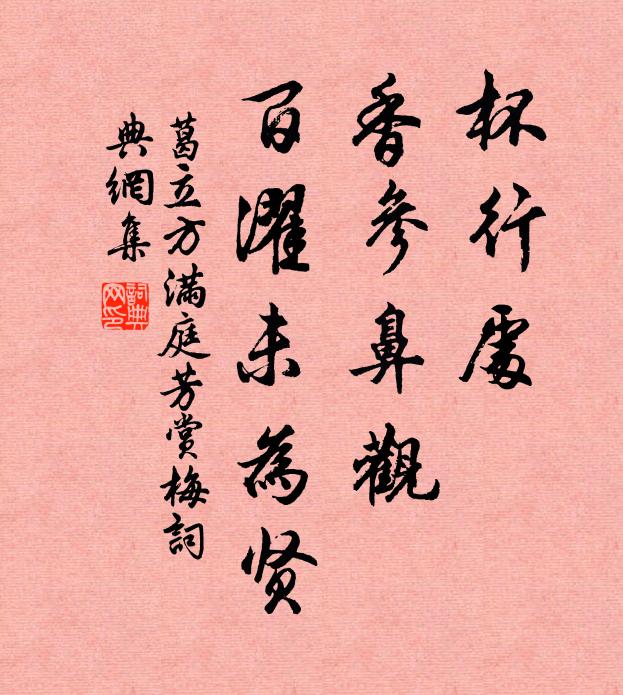 杯行處
香參鼻觀
百濯未為贤
葛立方滿庭芳賞梅詞
典網集
詞典网印